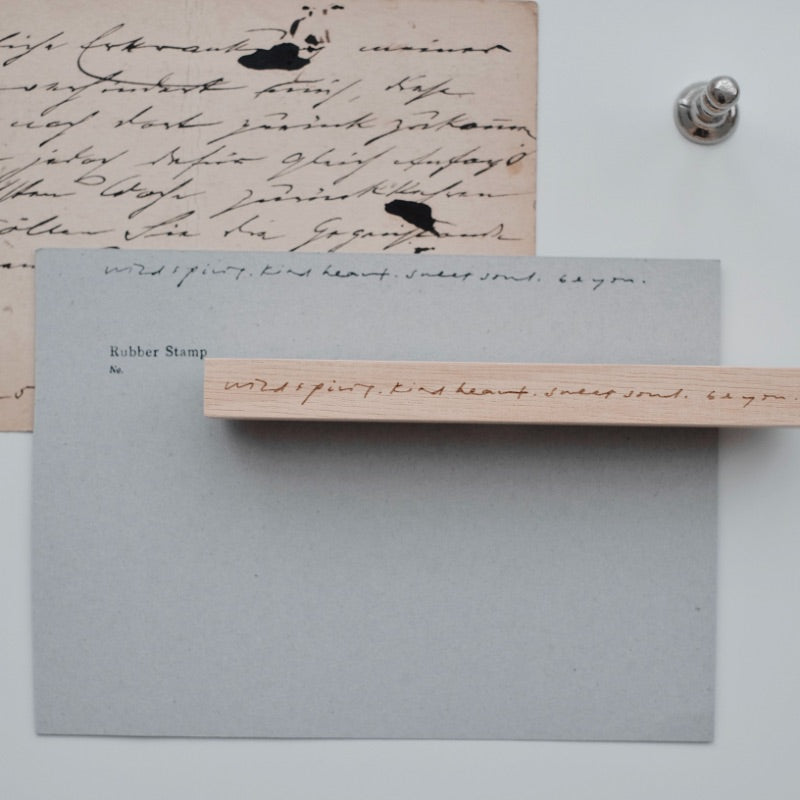 Erkrankung meiner
verhindert mich, diese
noch dort zurück zukommen
jedoch dafür gleich Anfang
Woche zurückkehren
Sie die Gegenstände
wild spirit. kind heart. sweet soul. be you.
Rubber Stamp
No.
wild spirit. kind heart. sweet soul. be you.